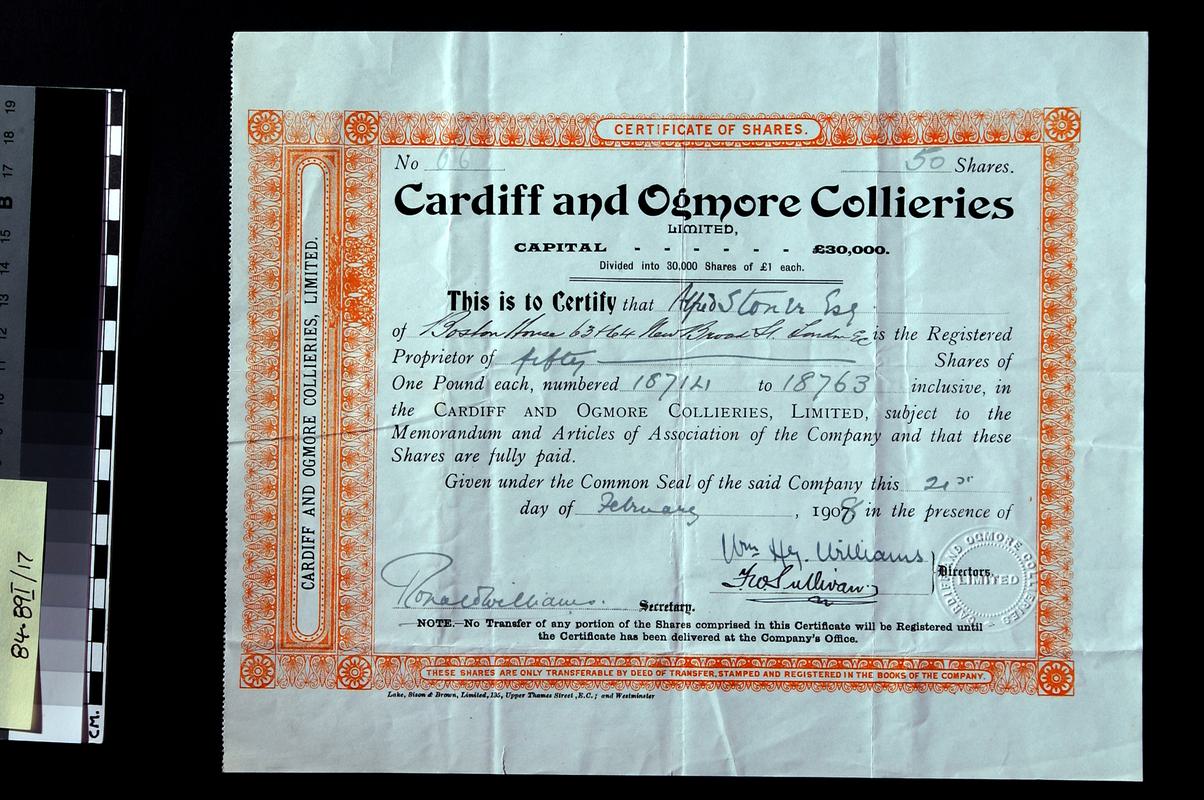 CERTIFICATE OF SHARES.
No 66 50 Shares.
Cardiff and Ogmore Collieries
LIMITED,
CAPITAL - - - - - - £30,000.
Divided into 30,000 Shares of £1 each.
This is to Certify that Alfred Stoner Esq
of Boston House 63 & 64 New Broad St. London EC is the Registered
Proprietor of fifty Shares of
One Pound each, numbered 18714 to 18763 inclusive, in
the CARDIFF AND OGMORE COLLIERIES, LIMITED, subject to the
Memorandum and Articles of Association of the Company and that these
Shares are fully paid.
Given under the Common Seal of the said Company this
day of February, 1908 in the presence of
Wm Hy. Williams
Directors.
Ronald Williams. Secretary.
NOTE.—No Transfer of any portion of the Shares comprised in this Certificate will be Registered until
the Certificate has been delivered at the Company's Office.
THESE SHARES ARE ONLY TRANSFERABLE BY DEED OF TRANSFER, STAMPED AND REGISTERED IN THE BOOKS OF THE COMPANY.
Lake, Sison & Brown, Limited, 135, Upper Thames Street, E.C.; and Westminster
CARDIFF AND OGMORE COLLIERIES, LIMITED.
CARDIFF AND OGMORE COLLIERIES
LIMITED
84.89I/17
19
18
17
B
15
14
13
12
11
10
CM.